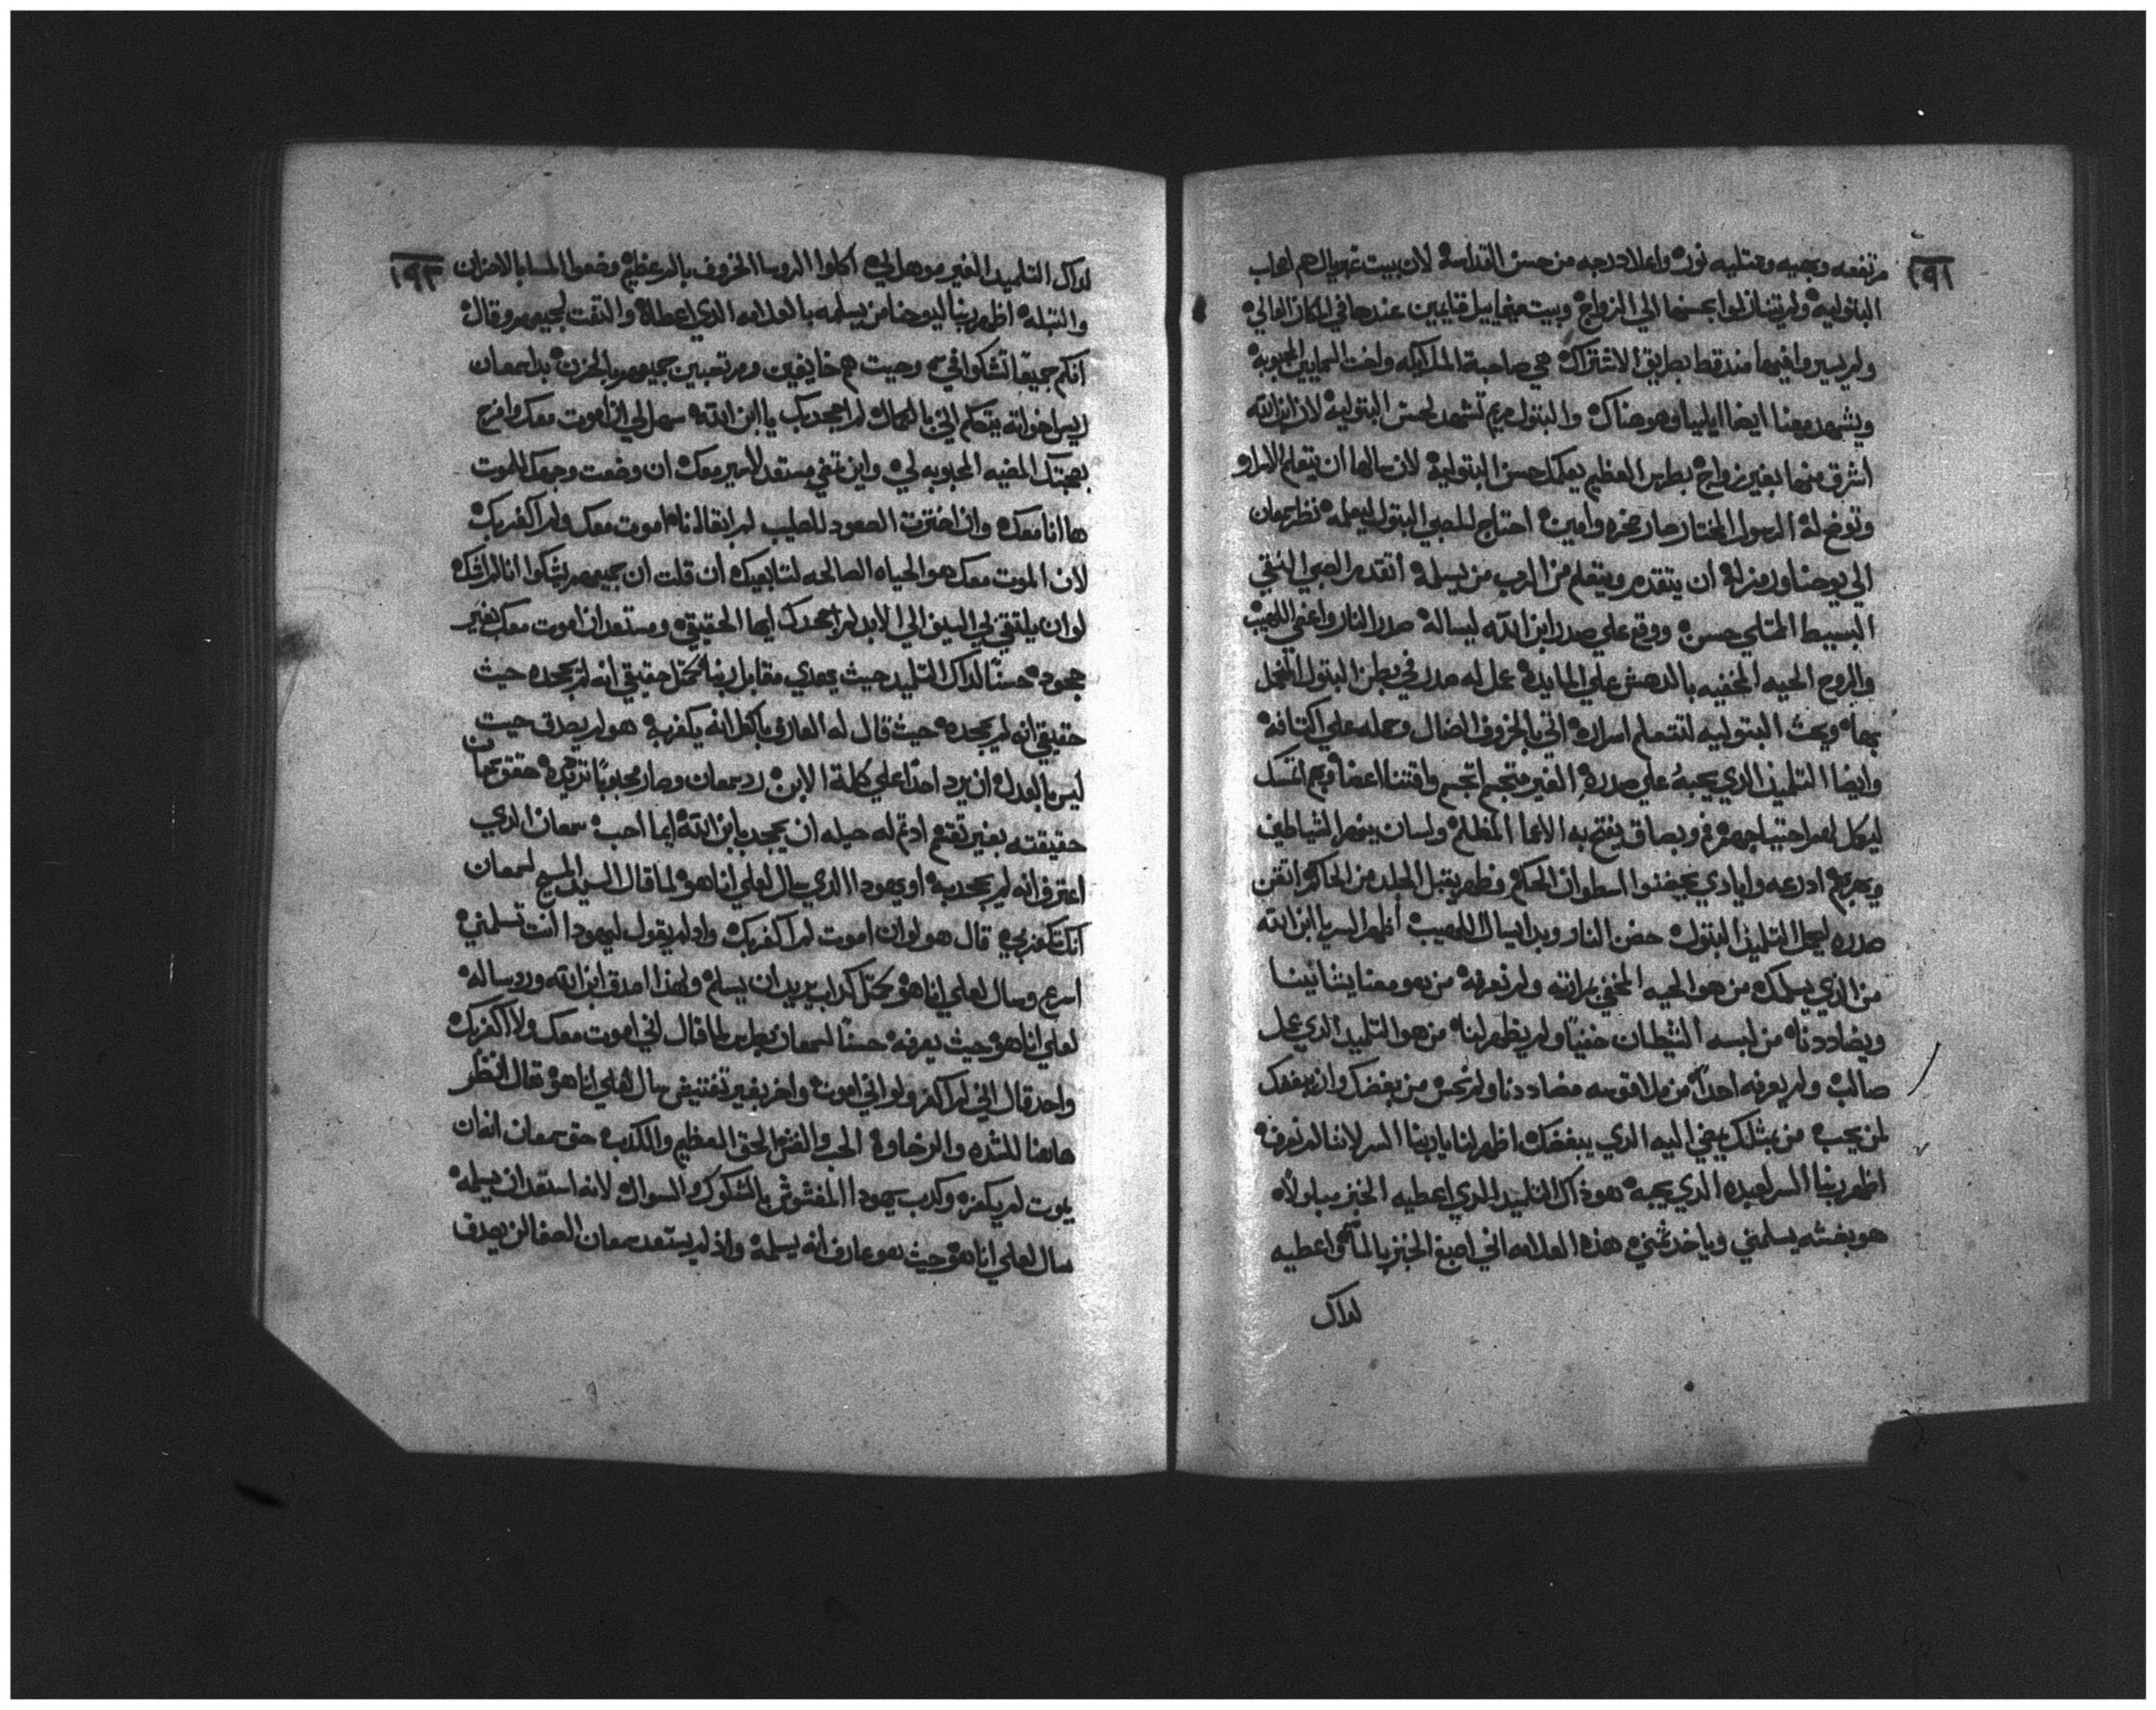 ١٩٢
مرتفعه وبهيه وممتليه نور واعلا درجه من حسن القداسه لان بيت غبريال هم اصحاب
البتوليه ولم يتنازلوا بحسنها الي الزواج وبيت ميخاييل قايمين عندها في المكان العالي
ولم يسيروا فيها منذ قط بطريق الاشتراك هي صاحبة الملايكه واخت السمايين المحبوبه
ويشهد معنا ايضا ايليا وهو هناك والبتول مريم تشهد لحسن البتوليه لان ابن الله
اشرق منها بغير زواج بطرس العظيم يعلمك حسن البتوليه لان سالها ان يتعلم الاسرار
وتوضح له الرسول المختار صار صخره وامين احتاج للصبي البتول ليعلمه نظر سمعان
الي يوحنا ورمز له ان يتقدم ويتعلم من الرب من يسلمه اتقدم الصبي النقي
البسيط الممتلي حسن ووقع علي صدر ابن الله ليساله صدر النار واعني اللهيب
والروح الحيه المخفيه بالدهش علي المايده عمل له صدر في بطن البتول المحل
بها وبحث البتوليه لتتعلم اسراره اتي بالخروف الضال وحمله علي اكتافه
وايضا التلميذ الذي يحبه علي صدره الغير متجسم اتجسم واقتنا اعضا وبهم اتمسك
ليكمل لهم احتياجهم فم وبصاق يفتح به الاعما المظلم ولسان ينهر الشياطين
ويهربهم ادرعه وايادي يحيضنوا اسطوان الحكم وظهر يقبل الجلد من الحاكم اتقن
صدره ليحمل التلميذ البتول حضن النار وبدا يسال اللهيب اظهر السر يا ابن الله
من الذي يسلمك من هو الحيه المخفي مرارته ولم نعرفه من هو معنا يشانينا
ويضاددنا من لبسه الشيطان خفيا ولم يظهر لنا من هو التلميذ الذي عمل
صالب ولم يعرفه احدا من ملا قوسه مضاددنا ولم نحس من يبغضك وانت ببغضك
لمن يحبه من بمثلك يعني اليه الذي يبغضك اظهر لنا يا ربنا السر لاننا لم نعرفه
اظهر ربنا السر لعبده الذي يحبه هو ذاك التلميذ الذي اعطيه الخبز مبلولا
هو بغشه يسلمني وياخد ثمني هذه العلامه اني اصبغ الخبز بالما واعطيه
لداك
١٩٣
لداك التلميد الغير موهل لي اكلوا الروسا الخروف بالم عظيم وضعوا المسا بالاحزان
والتبله اظهر ربنا ليوحنا من يسلمه بالعلامه الذي اعطاه والتفت لجميعهم وقال
انكم جميعا تشكوا في وحيت هم خايفين ومرتعبين جميعهم بالحزن بدا سمعان
ريس اخواته يتكلم اني بالكمال لم اجحدك يا ابن الله سهل لي ان اموت معك وافرح
بصحبتك المضيه المحبوبه لي واين تمضي مستعد لاسير معك ان وضعت وجهك للموت
ها انا معك وان اخترت الصعود للصليب لم ابقا انا اموت معك ولم اكفر بك
لان الموت معك هو الحياه الصالحه لتابعيك ان قلت ان جميعهم يشكوا انا لم اشك
لو ان يلتقي لي السيف الي الابد لم اجحدك ايها الحقيقي ومستعد ان اموت معك بغير
جحود حسنا لداك التلميد حيث يهدي مقابل ربنا محتل حقيقي انه لم يجحده حيث
حقيقي انه لم يجحده حيث قال له العارف بالكل انه يكفر به هو لم يصدق حيت
ليس بالعدل ان يرد احدا علي كلمة الابن رد سمعان وصار محبوبا تزكيه حقق سمعان
حقيقته بغير تقتقم ادتم له حيله ان يجحد بابن الله ايما احب سمعان الذي
اعترف انه لم يجحد به او يهودا الذي سال لعلي انا هو لما قال السيد المسيح لسمعان
انك تكفر بي قال هو لو ان اموت لم اكفر بك واد لم يقول ليهودا انت تسلمني
اسرع وسال لعلي انا هو محتل كداب يريد ان يسلم ولهذا اصدق ابن الله ورد ساله
لعلي انا هو حيث يعرفه حسنا لسمعان بطرس لما قال اني اموت معك ولا اكفر بك
واحد قال اني لم اكفر ولو اني اموت واخر بغير تفتيش سال لعلي انا هو تعال انظر
هاهنا للشده والرخاوه الحب والغش الحق العظيم والكدب حق سمعان انه ان
يموت لم يكفر وكدب يهودا المغشوش بالشكوك والسوال لانه استعد ان يسلمه
سال لعلي انا هو حيث هو عارف انه يسلمه واذ لم يستعد سمعان الصفا لن يصدق